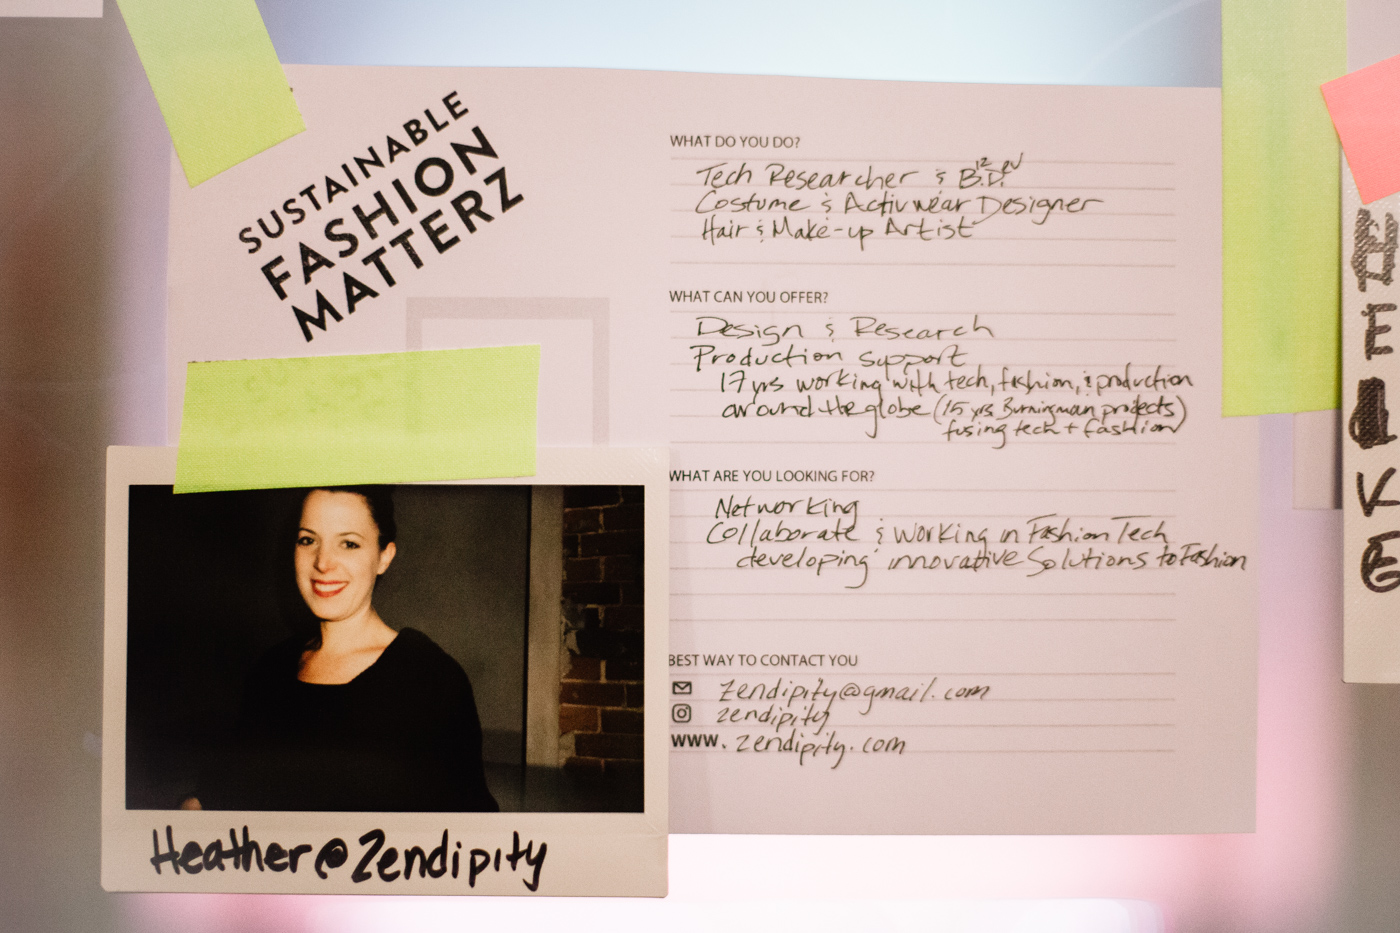 SUSTAINABLE
FASHION
MATTERZ
WHAT DO YOU DO?
Tech Researcher & B.D.
Costume & Activwear Designer
Hair & Make-up Artist
WHAT CAN YOU OFFER?
Design & Research
Production support
17 yrs working with tech, fashion, & production
around the globe (15 yrs Burningman projects)
fusing tech + fashion
WHAT ARE YOU LOOKING FOR?
Networking
Collaborate & working in Fashion Tech
developing innovative Solutions to Fashion
BEST WAY TO CONTACT YOU
Zendipity@gmail.com
zendipity
www. zendipity.com
Heather@Zendipity